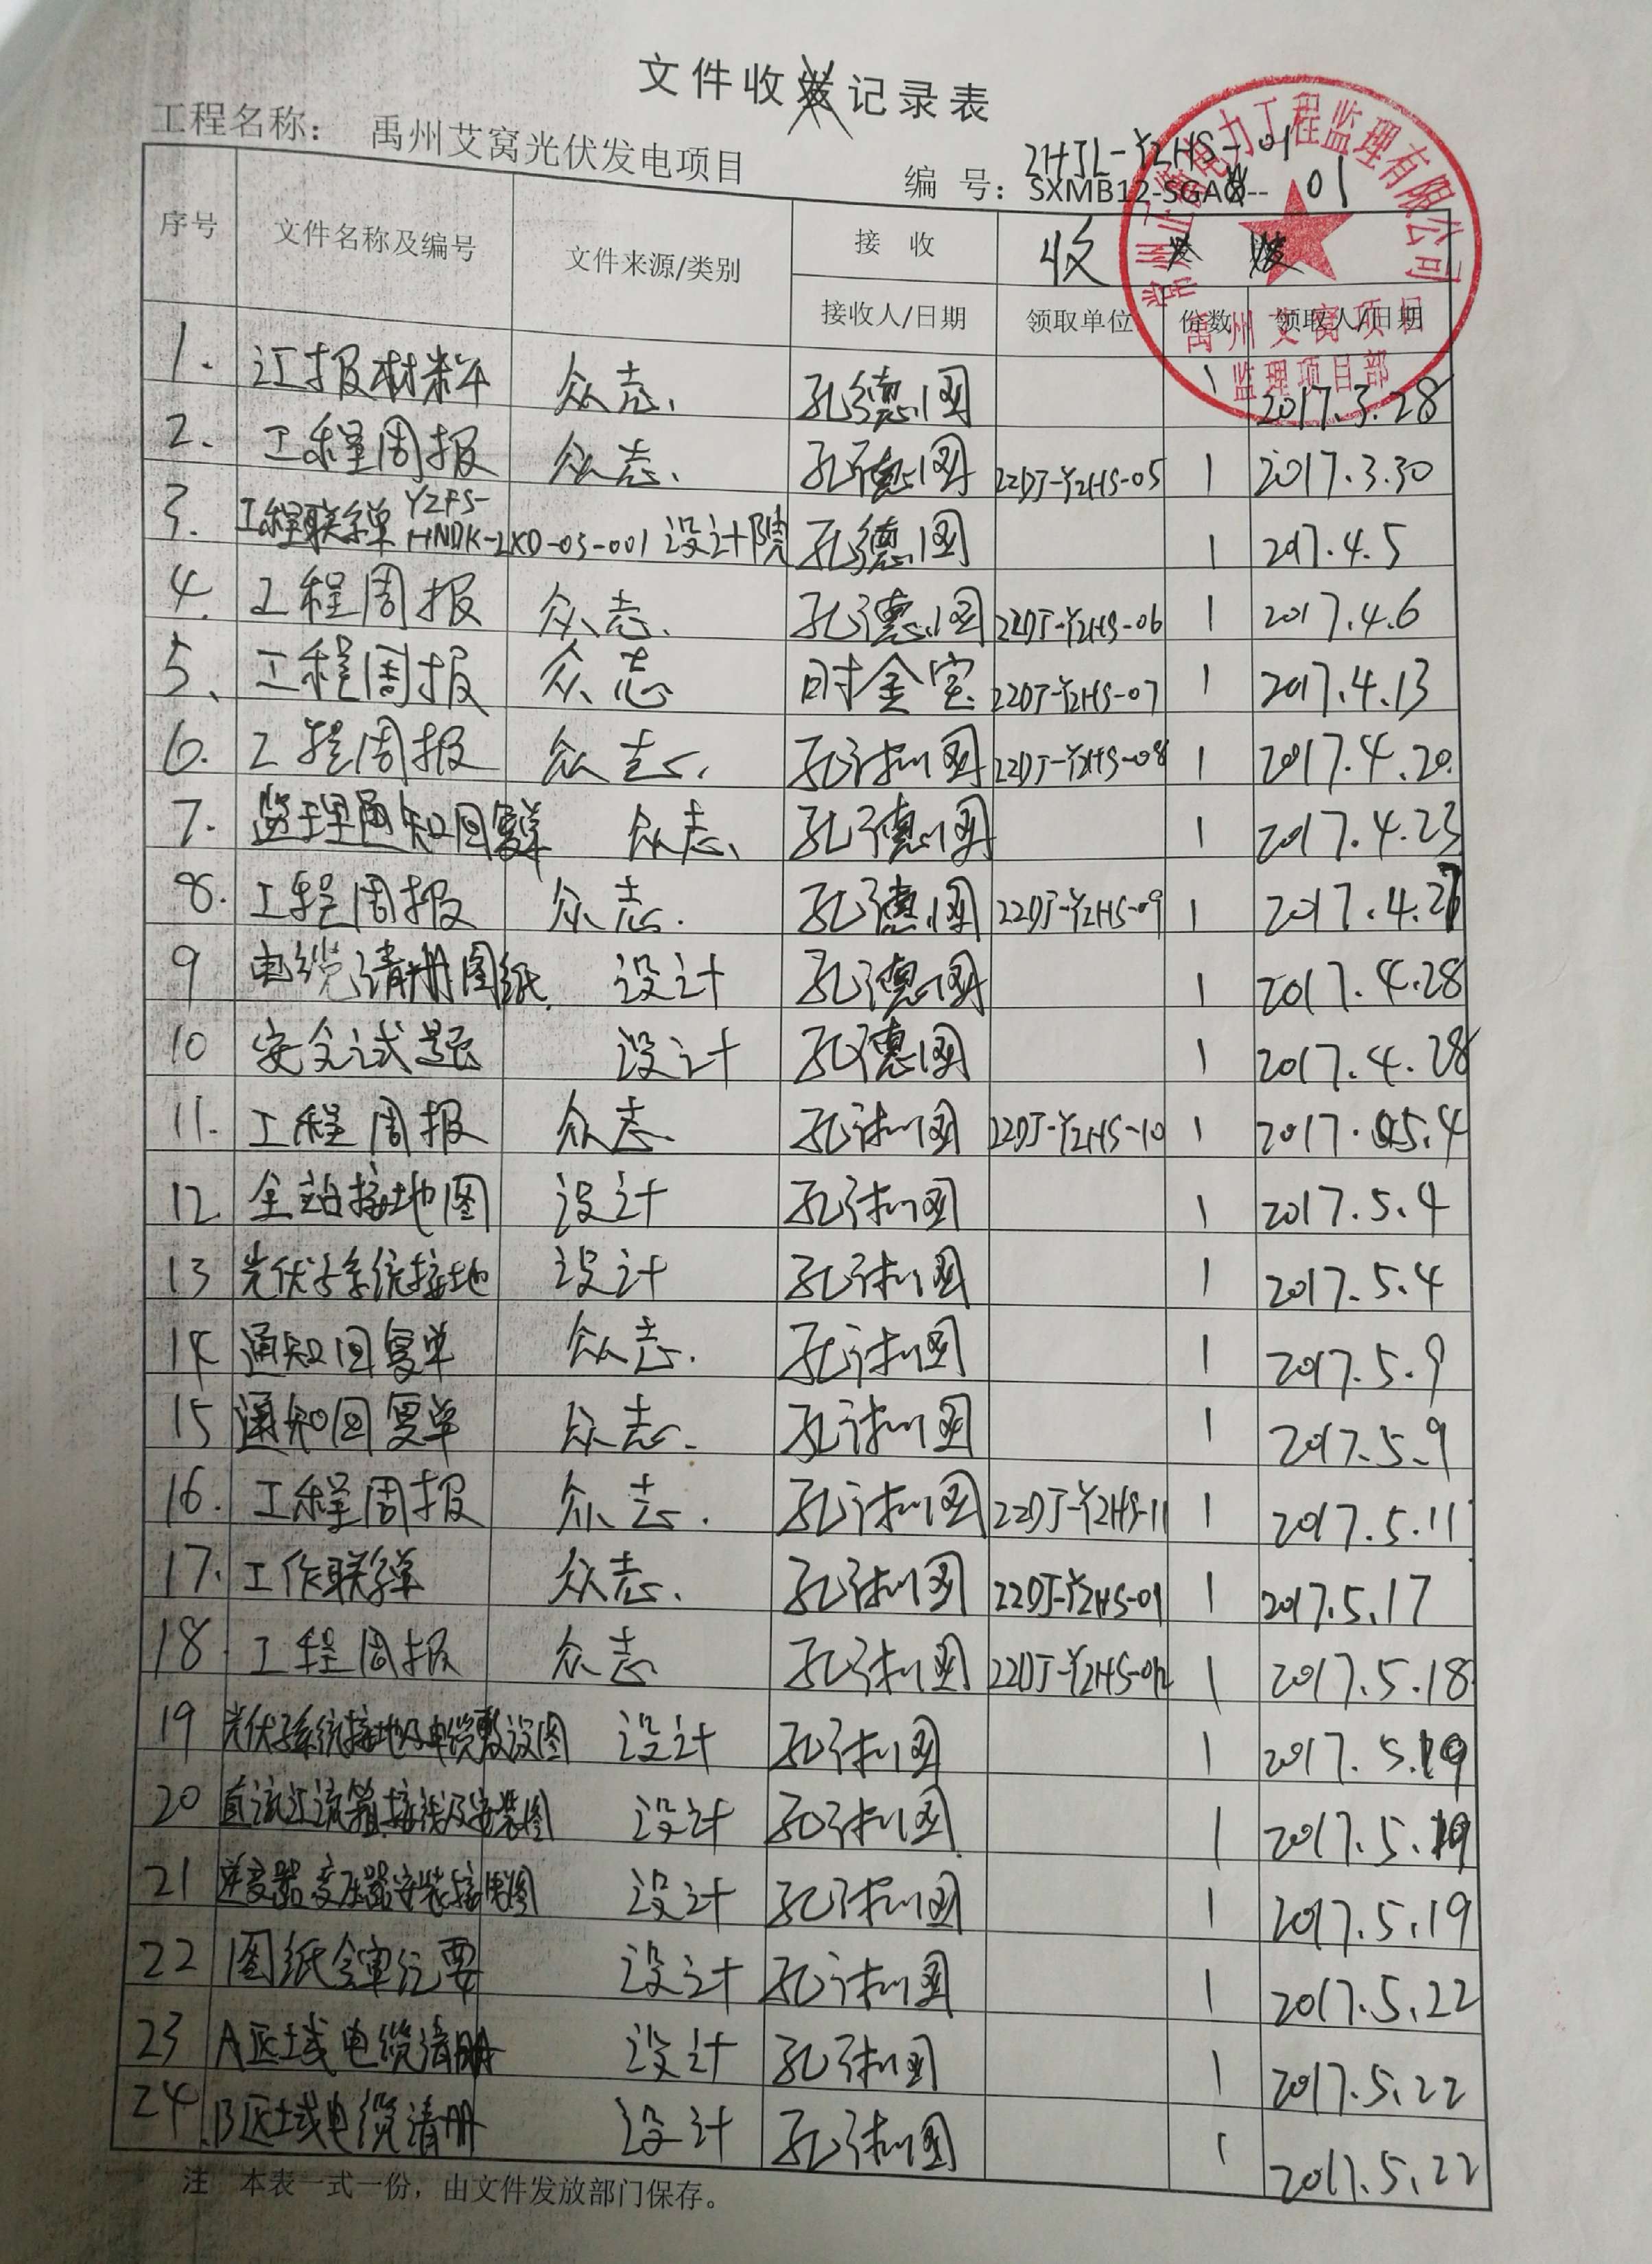 文件收发记录表
工程名称： 禹州艾窝光伏发电项目
ZHJL-YZHS-01
编 号：SXMB12-SGA0-- 01
序号 文件名称及编号 文件来源/类别 接 收 收
接收人/日期 领取单位 份数 领取人/日期
常州正衡电力工程监理有限公司
禹州艾窝项目
监理项目部
1. 报材料 众志. 孔德国 1 2017.3.28
2. 工程周报 众志. 孔德国 ZZDJ-YZHS-05 1 2017.3.30
3. 工程联系单 YZFS-HNDK-LXD-05-001 设计院 孔德国 1 2017.4.5
4. 工程周报 众志. 孔德国 ZZDJ-YZHS-06 1 2017.4.6
5、 工程周报 众志 时金宝 ZZDJ-YZHS-07 1 2017.4.13
6. 工程周报 众志. 孔德国 ZZDJ-YZHS-08 1 2017.4.20.
7. 监理通知回复单 众志、 孔德国 1 2017.4.23
8. 工程周报 众志. 孔德国 ZZDJ-YZHS-09 1 2017.4.27
9 电缆清册图纸. 设计 孔德国 1 2017.4.28
10 安全试题 设计 孔德国 1 2017.4.28
11. 工程周报 众志. 孔德国 ZZDJ-YZHS-10 1 2017.05.4
12 全站接地图 设计 孔德国 1 2017.5.4
13 光伏子系统接地 设计 孔德国 1 2017.5.4
14 通知回复单 众志. 孔德国 1 2017.5.9
15 通知回复单 众志. 孔德国 1 2017.5.9
16. 工程周报 众志. 孔德国 ZZDJ-YZHS-11 1 2017.5.11
17. 工作联系单 众志. 孔德国 ZZDJ-YZHS-01 1 2017.5.17
18. 工程周报 众志 孔德国 ZZDJ-YZHS-012 1 2017.5.18
19 光伏子系统接地及电缆敷设图 设计 孔德国 1 2017.5.19
20 直流汇流箱接线及安装图 设计 孔德国 1 2017.5.19
21 逆变器变压器安装接线图 设计 孔德国 1 2017.5.19
22 图纸会审纪要 设计 孔德国 1 2017.5.22
23 A区域电缆清册 设计 孔德国 1 2017.5.22
24 B区域电缆清册 设计 孔德国 1 2017.5.22
注 本表一式一份，由文件发放部门保存。